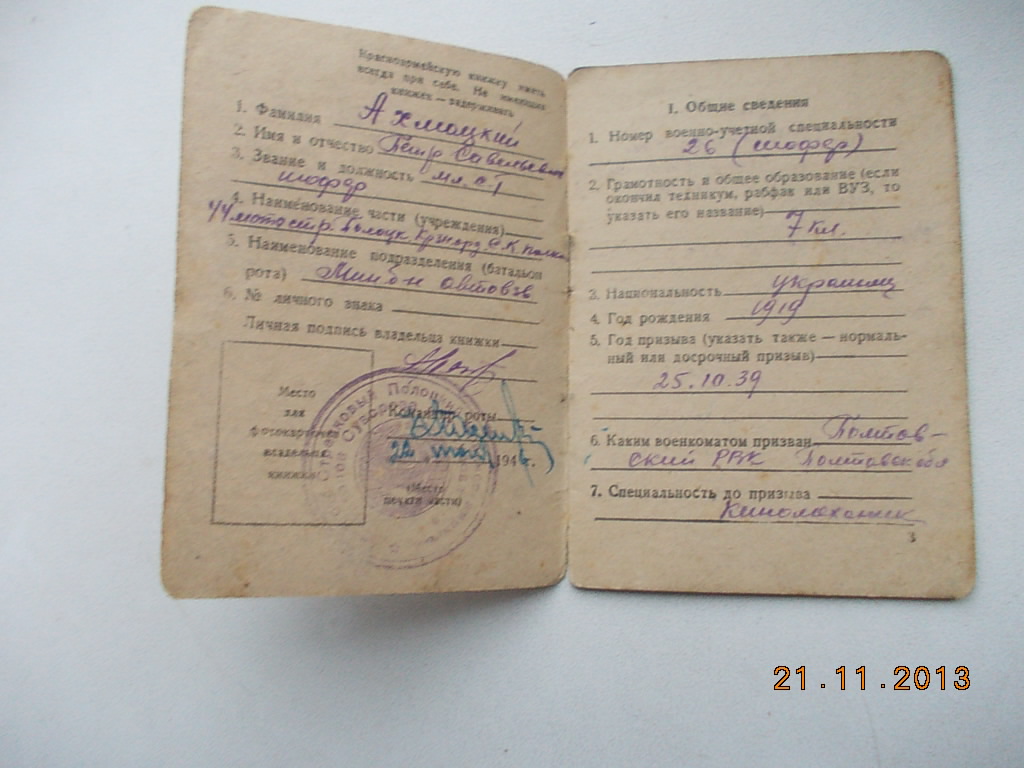 Красноармейскую книжку иметь
всегда при себе. Не имеющих
книжек — задерживать
1. Фамилия Ахмацкий
2. Имя и отчество Петр Савельевич
3. Звание и должность мл. с-т
шофер
4. Наименование части (учреждения)
44 мотостр. Полоцк
5. Наименование подразделения (батальон
рота)
6. № личного знака
Личная подпись владельца книжки
Место
для
фотокарточки
владельца
книжки
Командир роты
22 194 г.
(Место
печати части)
1. Общие сведения
1. Номер военно-учетной специальности
26 (шофер)
2. Грамотность и общее образование (если
окончил техникум, рабфак или ВУЗ, то
указать его название)
7 кл.
3. Национальность украинец
4. Год рождения 1919
5. Год призыва (указать также — нормаль-
ный или досрочный призыв)
25.10.39
6. Каким военкоматом призван Полтав-
ский РВК Полтавск обл
7. Специальность до призыва
Киномеханик
3
21.11.2013